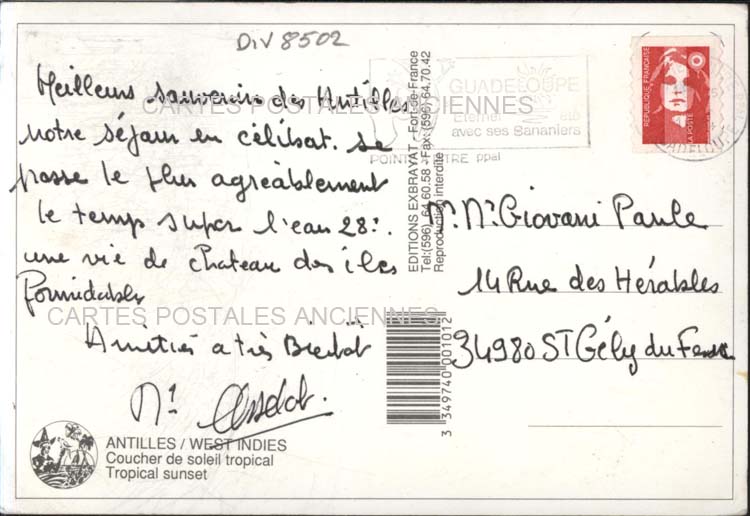 DIV 8502
Meilleurs souvenir des Antilles
notre séjour en célibat. se
passe le plus agréablement
le temps super l'eau 28°.
une vie de chateau des iles
formidables
Amitiés a très Bientôt
CARTES POSTALES ANCIENNES
CARTES POSTALES ANCIENNES
ANTILLES / WEST INDIES
Coucher de soleil tropical
Tropical sunset
EDITIONS EXBRAYAT - Fort-de-France
Tel:(596) 64.60.58 - Fax:(596) 64.70.42
Reproduction interdite
3 349740 001012
GUADELOUPE
Eternel été
avec ses Bananiers
POINTE ppal
REPUBLIQUE FRANÇAISE
LA POSTE
Giovani Paule
14 Rue des Hérables
34980 ST Gély du Fesc